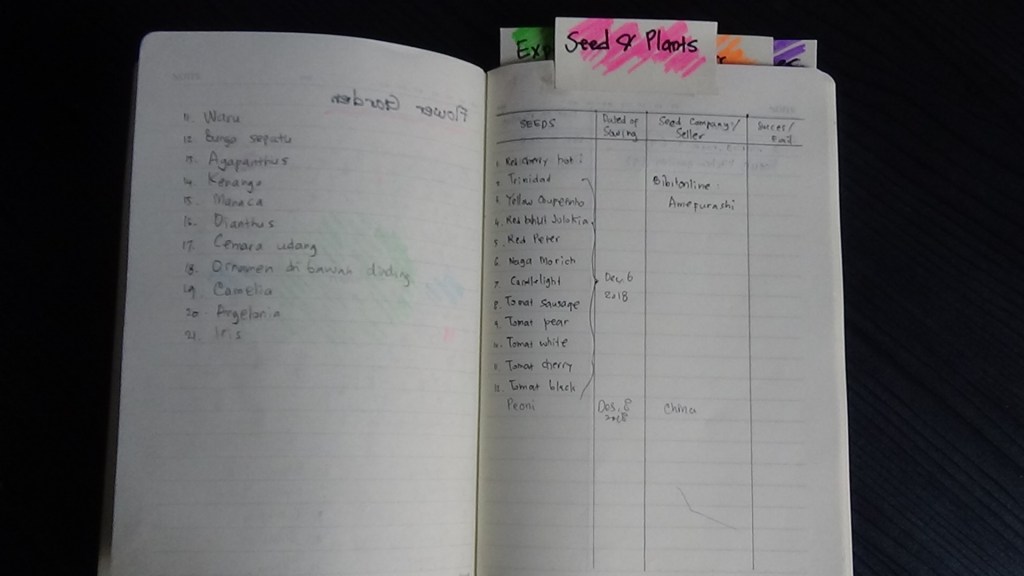 Seed & Plants
Exp
11. Waru
12. Bunga sepatu
13. Agapanthus
14. Kenanga
15. Maraca
16. Dianthus
17. Cemara udang
18. Ornamen di bawah dinding
19. Camelia
20. Angelonia
21. Iris
Flower Garden
SEEDS
Dated of Sowing
Seed Company/ Seller
Succes/ Fail
1. Red cherry hot
2. Trinidad
3. Yellow
4. Red bhut Jolokia
5. Red Peter
6. Naga Morich
7. Candlelight
8. Tomat sausage
9. Tomat pear
10. Tomat white
11. Tomat cherry
12. Tomat black
Peoni
Dec. 6
2018
Bibitonline
Amepurashi
Des. 8
2018
China